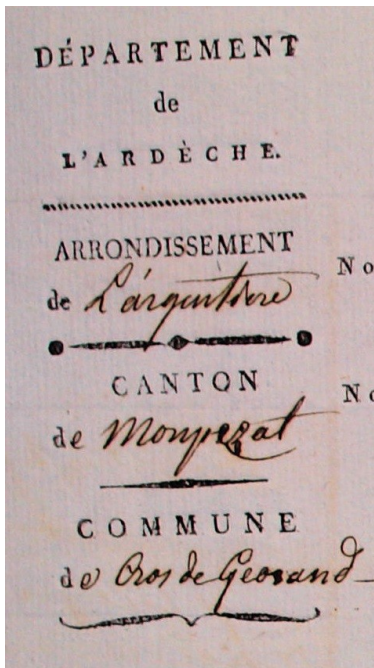 DÉPARTEMENT
de
L'ARDÈCHE.
ARRONDISSEMENT
No
de L'argentière
CANTON
No
de Monpezat
COMMUNE
de Cros de Georand